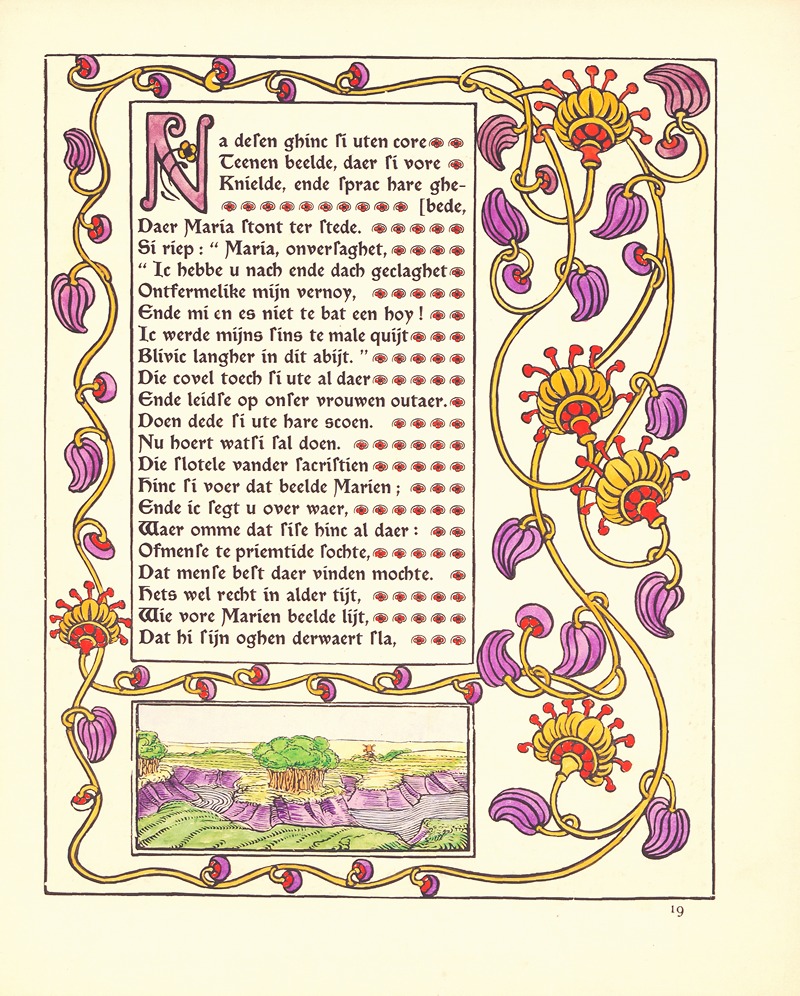 Na desen ghinc si uten core
Teenen beelde, daer si vore
Knielde, ende sprac hare ghe-
[bede,
Daer Maria stont ter stede.
Si riep : “ Maria, onversaghet,
“ Ic hebbe u nach ende dach geclaghet
Ontfermelike mijn vernoy,
Ende mi en es niet te bat een hoy !
Ic werde mijns sins te male quijt
Blivic langher in dit abijt. ”
Die covel toech si ute al daer
Ende leidse op onser vrouwen outaer.
Doen dede si ute hare scoen.
Nu hoert watsi sal doen.
Die slotele vander sacristien
Hinc si voer dat beelde Marien ;
Ende ic segt u over waer,
Waer omme dat sise hinc al daer :
Ofmense te priemtide sochte,
Dat mense best daer vinden mochte.
Hets wel recht in alder tijt,
Wie vore Marien beelde lijt,
Dat hi sijn oghen derwaert sla,
19